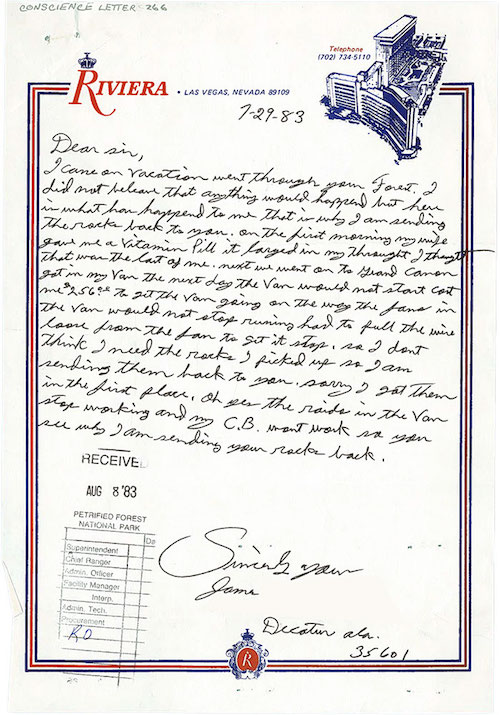 CONSCIENCE LETTER - 266
RIVIERA
• LAS VEGAS, NEVADA 89109
Telephone
(702) 734-5110
7-29-83
Dear sir,
I came on vacation went through your Forest. I
did not beleave that anything would happend but here
is what has happend to me that is why I am sending
the rocks back to you. on the first morning my wife
gave me a Vitamin Pill it larged in my throught I thought
that was the last of me. next we went on to Grand Canon
got in my Van the next day the Van would not start cost
me $256.00 to get the Van going on the way the fans in
the Van would not stop runing had to pull the wire
loose from the fan to get it stop. so I dont
think I need the rocks I picked up so I am
sending them back to you. sorry I got them
in the first place. Oh yes the raido in the Van
stop working and my C.B. wont work so you
see why I am sending your rocks back.
RECEIVE
AUG 8 '83
PETRIFIED FOREST
NATIONAL PARK
Da
Superintendent
Chief Ranger
Admin. Officer
Facility Manager
Interp.
Admin. Tech.
Procurement
RO
Sincerly your
Jame
Decatur ala.
35601
R